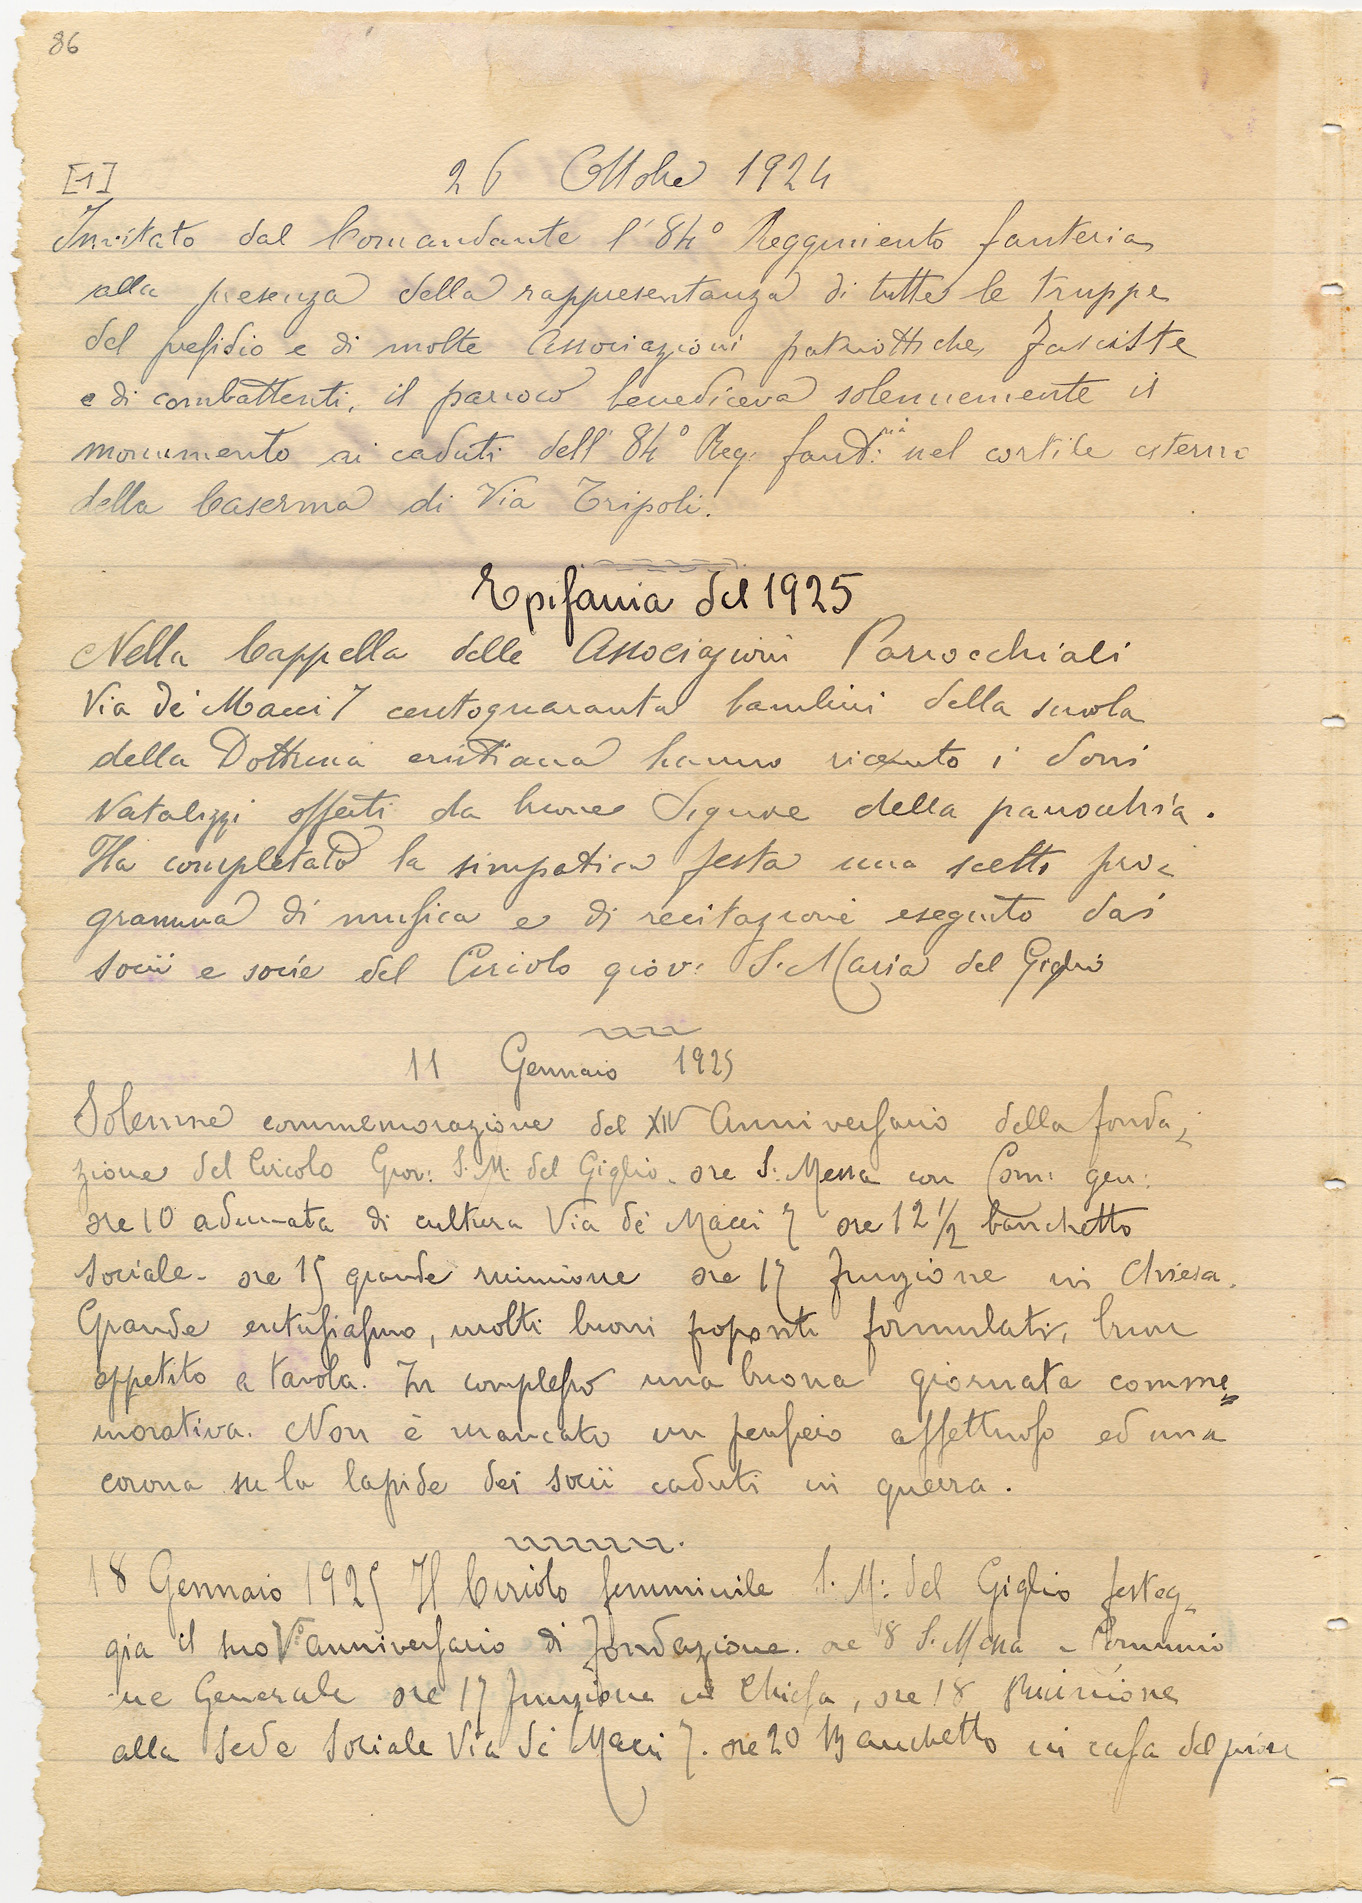 86
[1] 26 Ottobre 1924
Invitato dal Comandante l'84° Reggimento fanteria
alla presenza della rappresentanza di tutte le truppe
del presidio e di molte Associazioni patriottiche, fasciste
e di combattenti, il parroco benediceva solennemente il
monumento ai caduti dell'84° Reg: fant:ria nel cortile esterno
della Caserma di Via Tripoli.
Epifania del 1925
Nella Cappella delle Associazioni Parrocchiali
Via de' Macci 7 centoquaranta bambini della scuola
della Dottrina cristiana hanno ricevuto i doni
Natalizzi offerti da buone Signore della parrocchia.
Ha completato la simpatica festa una scelto pro-
gramma di musica e di recitazione eseguito dai
socii e socie del Circolo giov: S. Maria del Giglio
11 Gennaio 1925
Solenne commemorazione del XIV Anniversario della fonda-
zione del Circolo Giov: S. M. del Giglio. ore S: Messa con Com: gen:
ore 10 adunata di cultura Via de' Macci 7 ore 12 1/2 banchetto
sociale. ore 15 grande riunione ore 17 funzione in Chiesa.
Grande entusiasmo, molti buoni propositi formulati, buon
appetito a tavola. In complesso una buona giornata comme=
morativa. Non è mancato un pensiero affettuoso ed una
corona su la lapide dei socii caduti in guerra.
18 Gennaio 1925 Il Circolo femminile S. M: del Giglio festeg-
gia il suo V° anniversario di fondazione. ore 8 S. Messa e Comunio
ne Generale ore 17 funzione in Chiesa, ore 18 Riunione
alla Sede Sociale Via de' Macci 7. ore 20 Banchetto in casa del priore